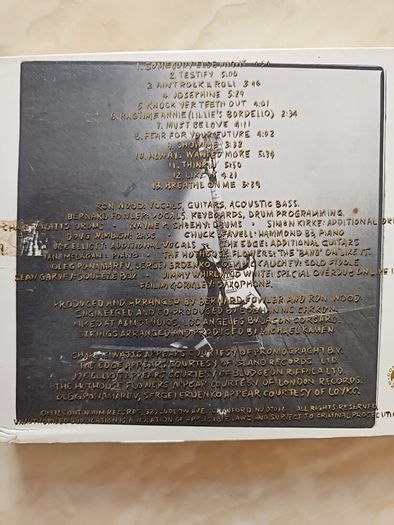 1. SOMEBODY ELSE MIGHT 4:51
2. TESTIFY 5:00
3. AIN'T ROCK & ROLL 3:46
4. JOSEPHINE
5. KNOCK YER TEETH OUT 4:01
6. RAGTIME ANNIE (LILLIE'S BORDELLO) 2:34
7. MUST BE LOVE 4:11
8. FEAR FOR YOUR FUTURE 4:02
9. SHOW ME 3:38
10. ALWAYS WANTED MORE 5:39
11. THINKIN' 5:50
12. LIKE IT 4:21
13. BREATHE ON ME
RON WOOD: VOCALS, GUITARS, ACOUSTIC BASS.
BERNARD FOWLER: VOCALS, KEYBOARDS, DRUM PROGRAMMING.
CHARLIE WATTS: DRUMS WAYNE P. SHEEHY: DRUMS SIMON KIRKE: ADDITIONAL
DOUG WIMBISH: BASS CHUCK LEAVELL: HAMMOND B3, PIANO
JOE ELLIOTT: ADDITIONAL VOCALS THE EDGE: ADDITIONAL GUITARS
IAN MCLAGAN: PIANO THE HOTHOUSE FLOWERS: THE "BAND" ON LIKE IT.
OLEG PONAMAREV, SERGEI ERDENKO
SEAN GARVEY: SQUEEZE BOX JIMMY WHIRLWIND WHITE: SPECIAL OVERDUB ON
SAXOPHONE.
PRODUCED AND ARRANGED BY BERNARD FOWLER AND RON WOOD
ENGINEERED AND CO-PRODUCED BY EOGHAN MC CARRON
MIXED AT A&M STUDIOS, LOS ANGELES BY JASON CORSARO
STRINGS ARRANGED AND PRODUCED BY MICHAEL KAMEN.
CHARLIE WATTS APPEARS COURTESY OF PROMOGRACHT B.V.
THE EDGE APPEARS COURTESY OF ISLAND RECORDS LTD.
JOE ELLIOTT APPEARS COURTESY OF BLUDGEON RIFFOLA LTD.
THE HOTHOUSE FLOWERS APPEAR COURTESY OF LONDON RECORDS.
OLEG PONAMAREV, SERGEI ERDENKO APPEAR COURTESY OF LOYKO.
1992 CONTINUUM RECORDS, 380 LUDLOW AVE. CRANFORD NJ 07016 ALL RIGHTS RESERVED.
UNAUTHORIZED DUPLICATION IS A VIOLATION OF APPLICABLE LAWS AND SUBJECT TO CRIMINAL